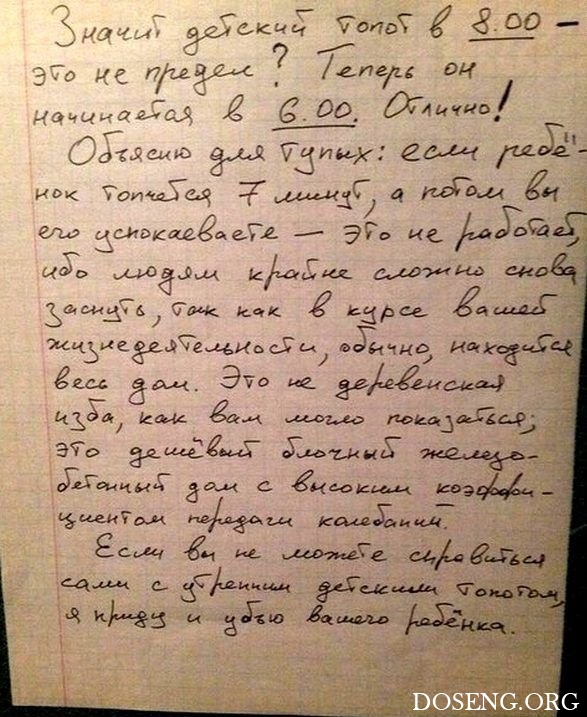 Значит детский топот в 8.00 –
это не предел? Теперь он
начинается в 6.00. Отлично!
Объясню для тупых: если ребё-
нок топчется 7 минут, а потом вы
его успокаеваете – это не работает,
ибо людям крайне сложно снова
заснуть, так как в курсе вашей
жизнедеятельности, обычно, находится
весь дом. Это не деревенская
изба, как вам могло показаться;
это дешёвый блочный железо-
бетонный дом с высоким коэффи-
циентом передачи колебаний.
Если вы не можете справиться
сами с утренним детским топотом,
я приду и убью вашего ребёнка.
DOSENG.ORG